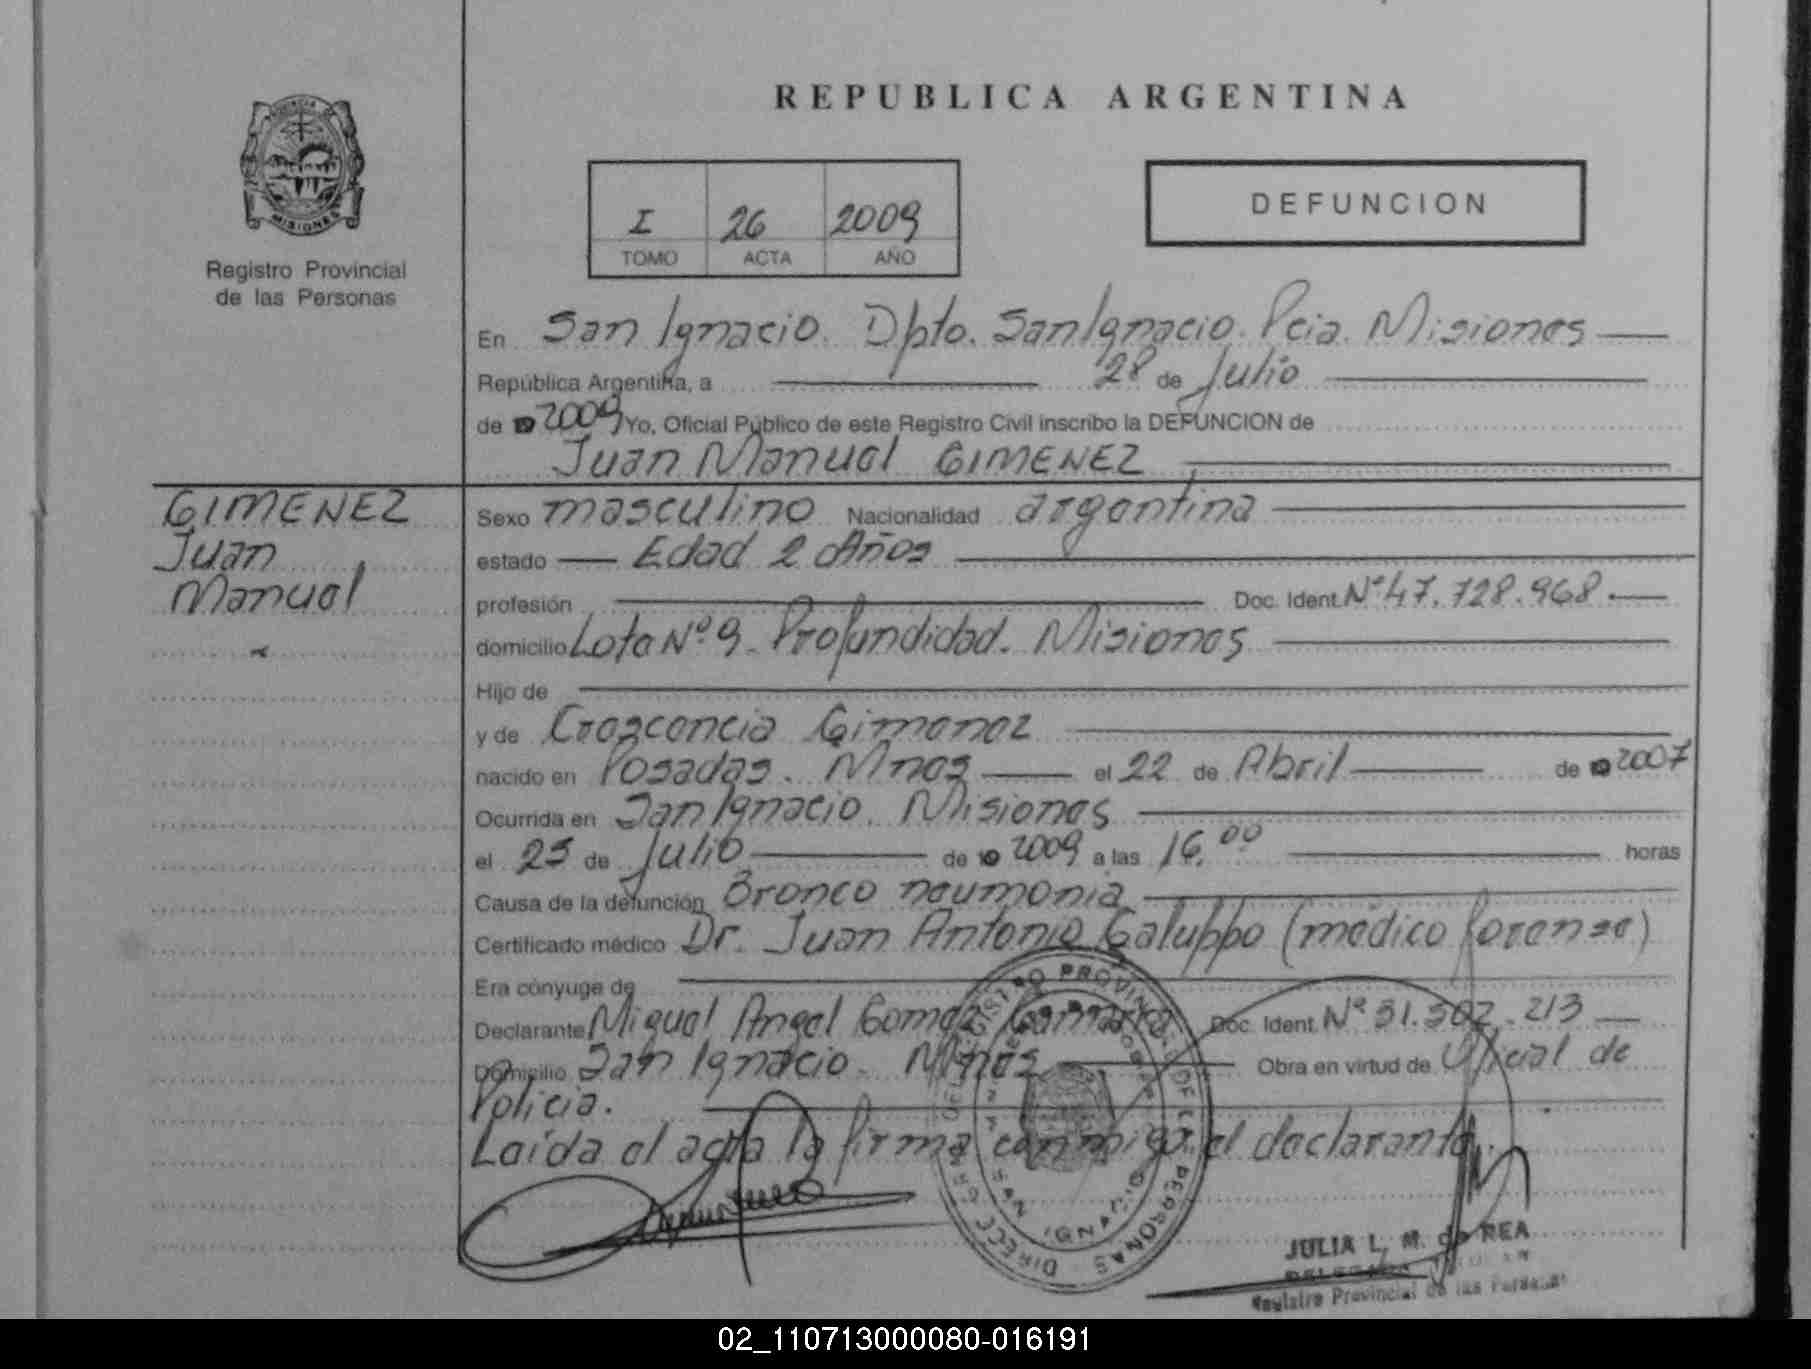 REPUBLICA ARGENTINA
PROVINCIA DE
MISIONES
Registro Provincial
de las Personas
I 26 2009
TOMO ACTA AÑO
DEFUNCION
En San Ignacio. Dpto. San Ignacio. Pcia. Misiones
República Argentina, a 28 de Julio
de 19 2009 Yo, Oficial Público de este Registro Civil inscribo la DEFUNCION de
Juan Manuel GIMENEZ
GIMENEZ
Juan
Manuel
Sexo masculino Nacionalidad argentina
estado Edad 2 Años
profesión Doc. Ident. Nº 47.728.968.
domicilio Lote Nº 9. Profundidad. Misiones
Hijo de
y de Crescencia Gimenez
nacido en Posadas. Mnes el 22 de Abril de 19 2007
Ocurrida en San Ignacio. Misiones
el 25 de Julio de 19 2009 a las 16,00 horas
Causa de la defunción Bronco neumonia
Certificado médico Dr. Juan Antonio Galuppo (médico forense)
Era cónyuge de
Declarante Miguel Angel Gomez Doc. Ident. Nº 31.502.213
Domicilio San Ignacio. Mnes Obra en virtud de Oficial de
Policia.
Leída el acta la firma conmigo el declarante.
REGISTRO PROVINCIAL DE LAS PERSONAS
SAN IGNACIO
JULIA L. M. de REA
Registro Provincial de las Personas
02_110713000080-016191